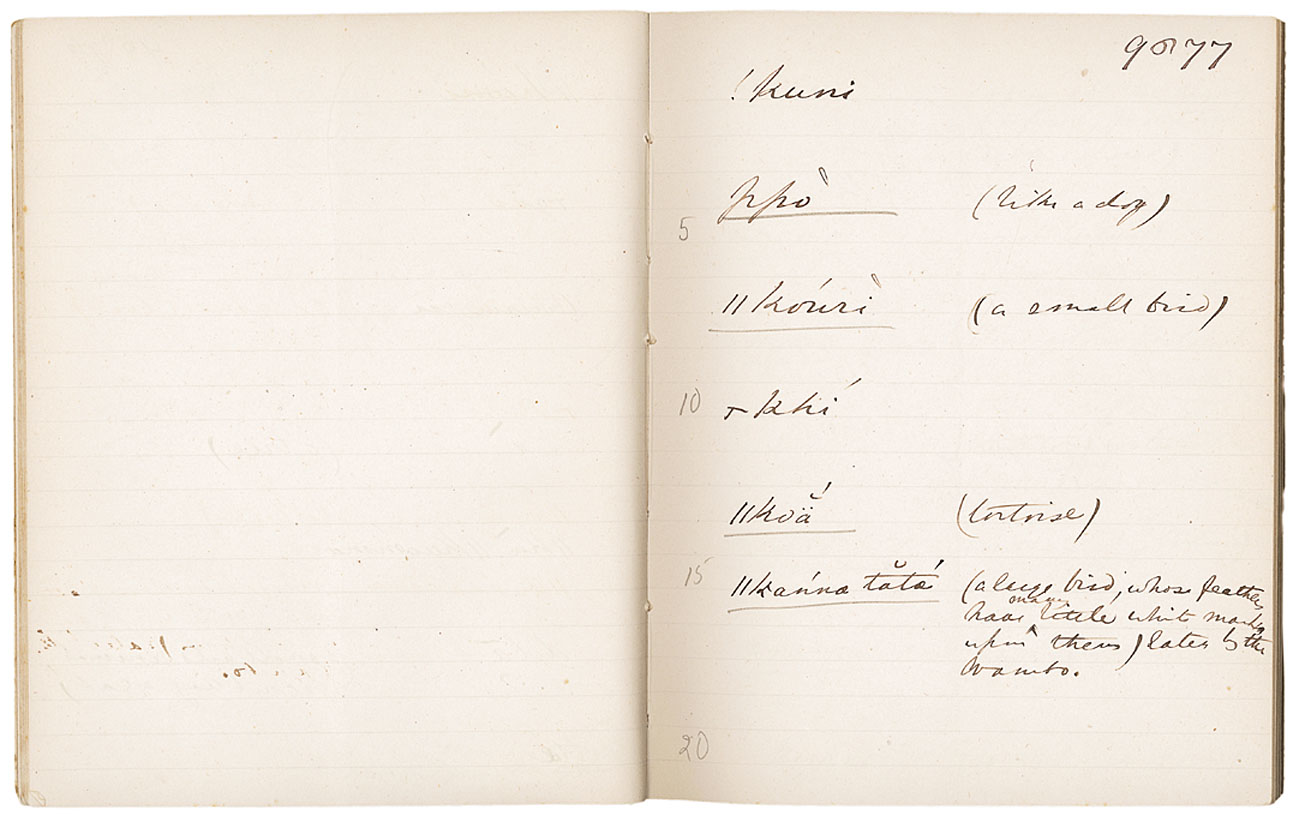 9077
!kuni
ppò (like a dog)
5
ǁkóuri̓ (a small bird)
10
⊤khí
ǁkoä̆́ (tortoise)
15
ǁkańna tătá (a large bird, whose feathers
have many little white marks
upon them) eaten by the
Wambo.
20